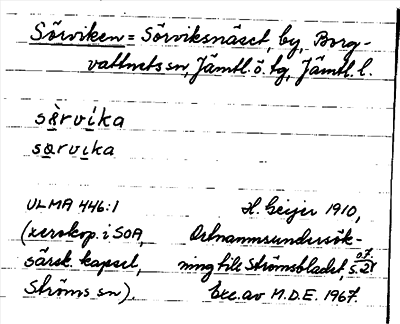 Sörviken = Sörviksnäset, by, Borg-
vattnets sn, Jämtl. ö. tg, Jämtl. l.
sèrvíka
særvika
ULMA 446:1
(xerokop. i SOA,
särsk. kapsel,
Ströms sn).
H. Geijer 1910,
Ortnamnsundersök-
ning till Strömsbladet, s. 2
Exc. av M.D.E. 1967.